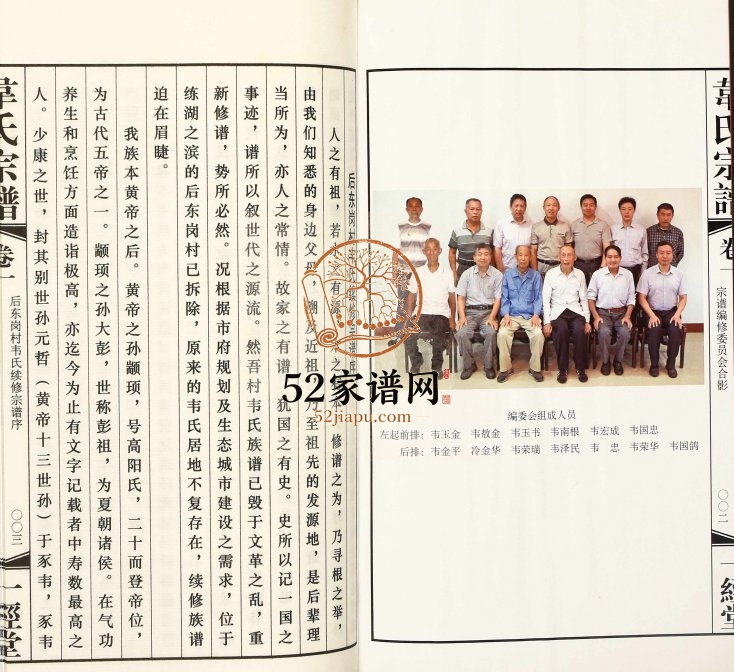 韋氏宗譜
卷一
宗谱编修委员会合影
〇〇二
一經堂
编委会组成人员
左起前排：韦玉金 韦敖金 韦玉书 韦南根 韦宏成 韦国忠
后排：韦金平 冷金华 韦荣瑞 韦泽民 韦 忠 韦荣华 韦国鸽
52家谱网
52jiapu.com
后东岗村
人之有祖，若 有源 之 修谱之为，乃寻根之举，
由我们知悉的身边父 溯及近祖 乃至祖先的发源地，是后辈理
当所为，亦人之常情。故家之有谱，犹国之有史。史所以记一国之
事迹，谱所以叙世代之源流。然吾村韦氏族谱已毁于文革之乱，重
新修谱，势所必然。况根据市府规划及生态城市建设之需求，位于
练湖之滨的后东岗村已拆除，原来的韦氏居地不复存在，续修族谱
迫在眉睫。
我族本黄帝之后。黄帝之孙颛顼，号高阳氏，二十而登帝位，
为古代五帝之一。颛顼之孙大彭，世称彭祖，为夏朝诸侯。在气功
养生和烹饪方面造诣极高，亦迄今为止有文字记载者中寿数最高之
人。少康之世，封其别世孙元哲（黄帝十三世孙）于豕韦，豕韦
韋氏宗譜
卷一
后东岗村韦氏续修宗谱序
〇〇三
一經堂